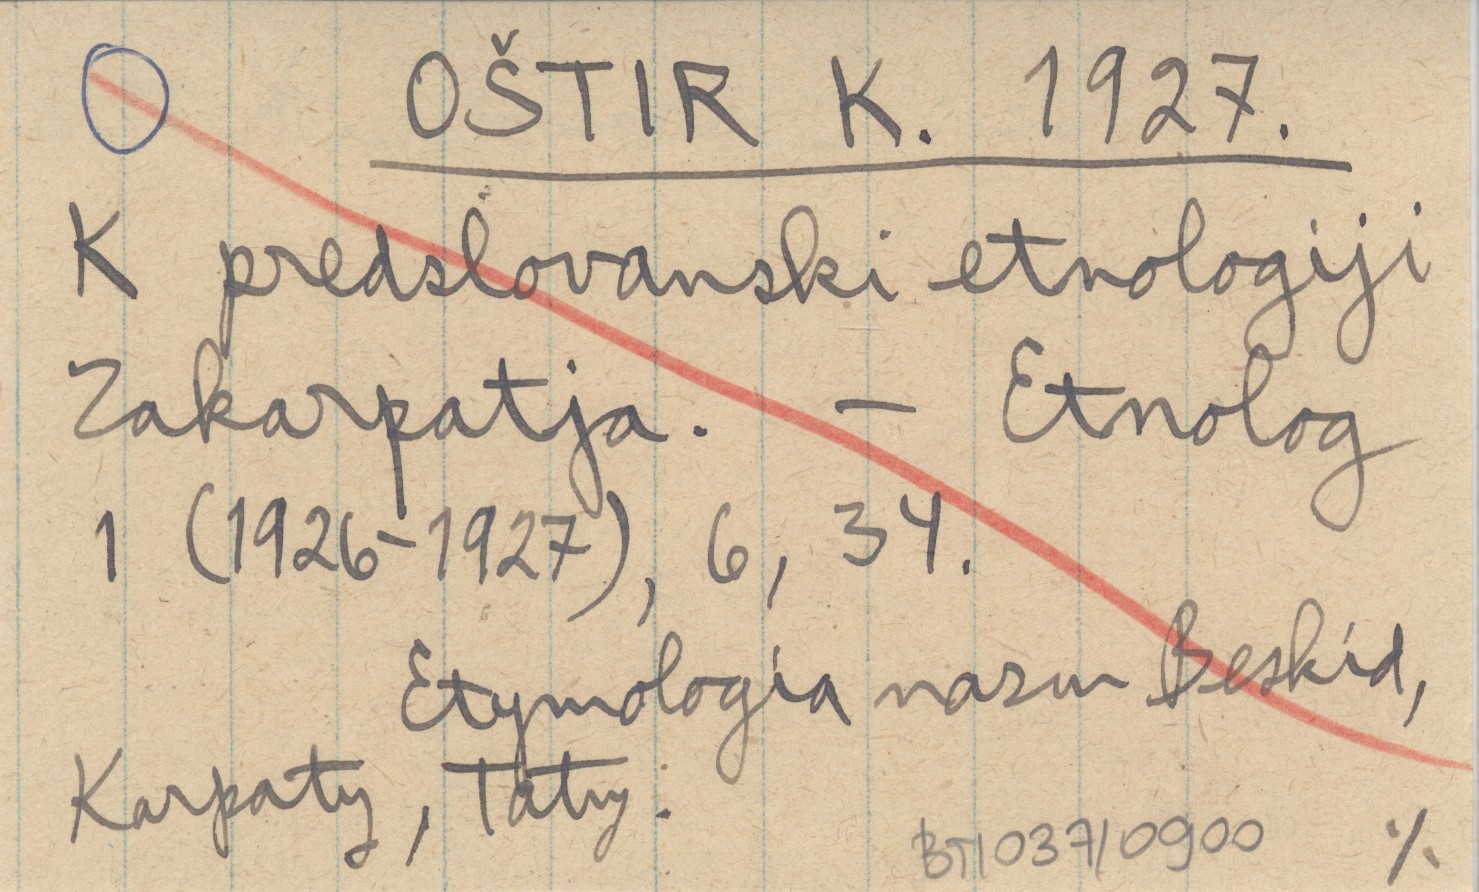 OŠTIR K. 1927.
K predslovanski etnologiji
Zakarpatja. – Etnolog
1 (1926-1927), 6, 34.
Etymologia nazw Beskid,
Karpaty, Tatry.
BT/037/0900 ./.